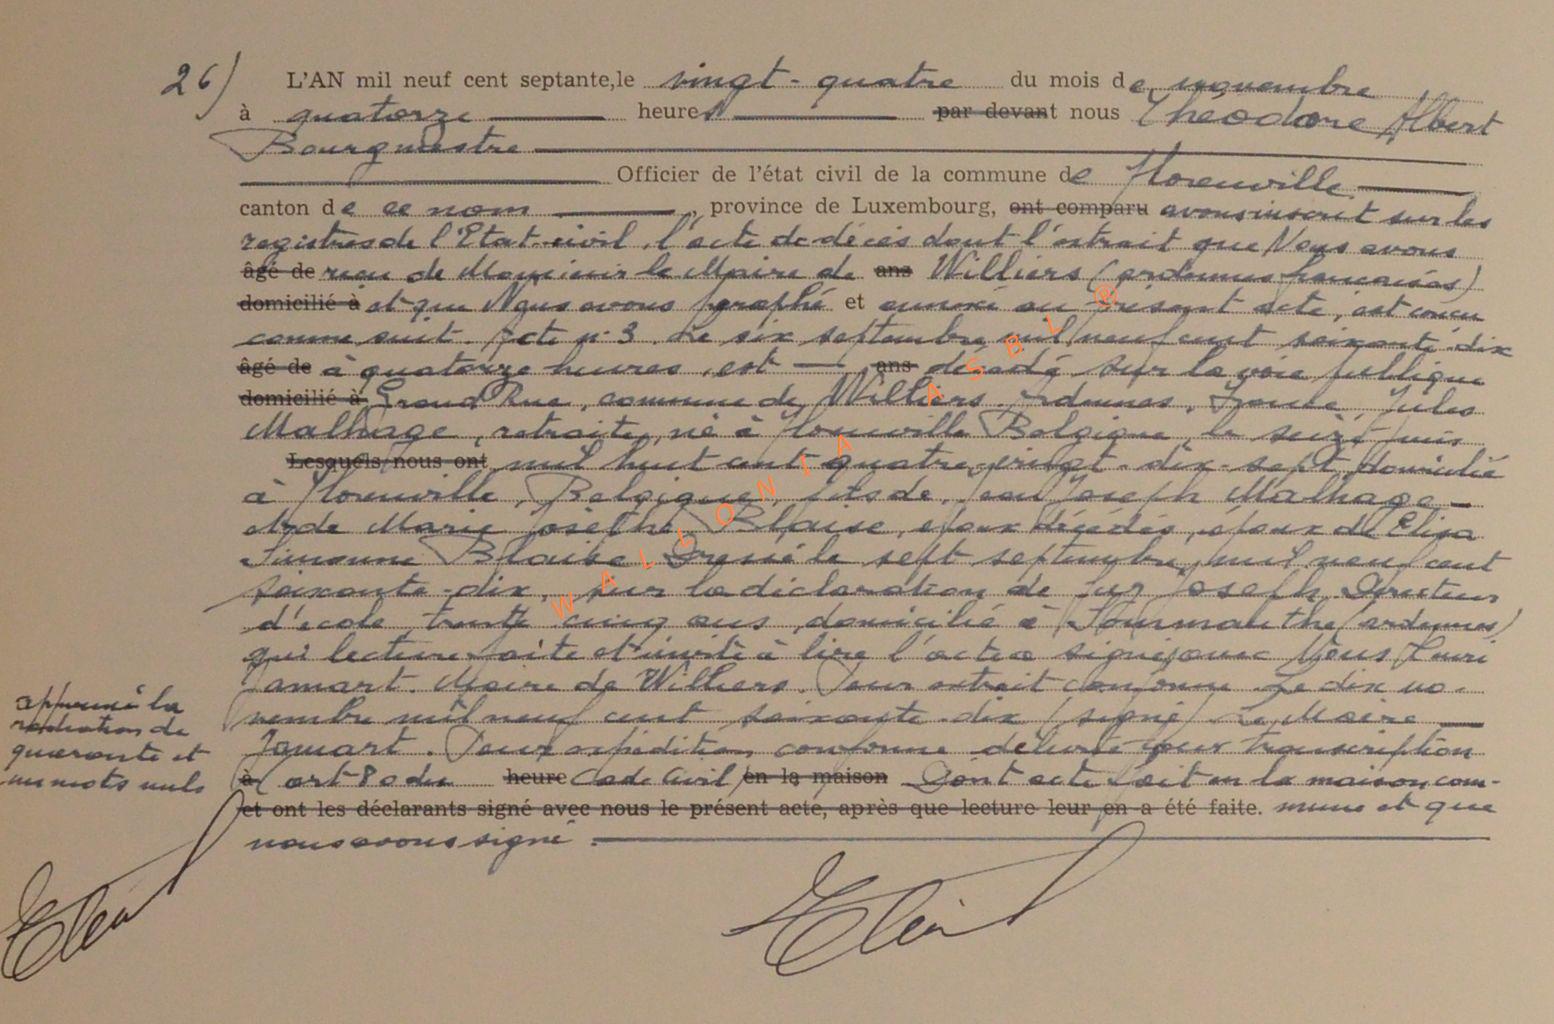 26) L'AN mil neuf cent septante, le vingt-quatre du mois de novembre
à quatorze heures par devant nous Théodore Albert
Bourgmestre
Officier de l'état civil de la commune de Florenville
canton de ce nom, province de Luxembourg, ont comparu avons inscrit sur les
registres de l'Etat-civil, l'acte de décès dont l'extrait que Nous avons
âgé de reçu de Monsieur le Maire de ans Williers (ardennes françaises)
domicilié à et que Nous avons paraphé et annexé au présent acte, est conçu
comme suit. Acte n° 3. Le six septembre mil neuf cent soixante-dix
âgé de à quatorze heures, est ans décédé sur la voie publique
domicilié à Grand'Rue, commune de Williers Ardennes, Jules
Malhage, retraité, né à Florenville Belgique, le seize juin
Lesquels nous ont mil huit cent quatre-vingt-dix-sept, domicilié
à Florenville, Belgique, fils de, Jean Joseph Malhage
et de Marie Josèphe Blaise, époux décédés, époux de Elisa
Simonne Blaise. Dressé le sept septembre, mil neuf cent
soixante-dix, sur la déclaration de Joseph, Directeur
d'école, trente cinq ans, domicilié à (ardennes)
qui lecture faite et invité à lire l'acte a signé avec Nous Henri
Jamart. Maire de Williers. Pour extrait conforme. Le dix no-
vembre mil neuf cent soixante-dix (signé) Le Maire
Jamart. Pour expédition conforme délivrée pour transcription
à (art 80 du heure Code Civil en la maison Dont acte fait en la maison com-
et ont les déclarants signé avec nous le présent acte, après que lecture leur en a été faite. mune et que
nous avons signé.
approuvé la
radiation de
quarante et
un mots nuls
WALLONIA ASBL ®